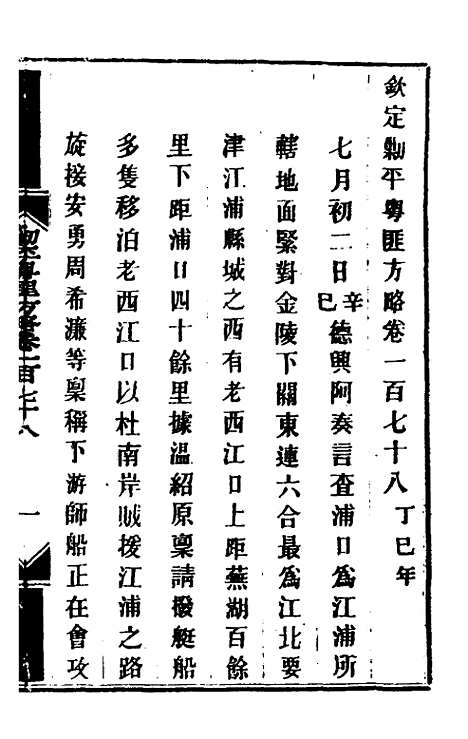 欽定勦平粵匪方略卷一百七十八丁巳年
七月初二日辛巳德興阿奏言查浦口爲江浦所
轄地面緊對金陵下關東連六合最爲江北要
津江浦縣城之西有老西江口上距蕪湖百餘
里下距浦口四十餘里據溫紹原稟請撥艇船
多隻移泊老西江口以杜南岸賊援江浦之路
旋接安勇周希濂等稟稱下游師船正在會攻
卷一百七十八
一